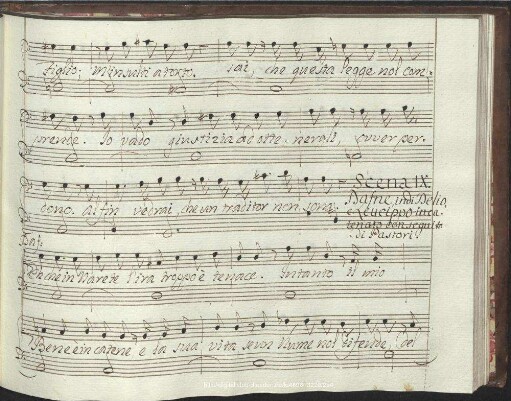 figlio; m'insulti a torto. sai, che questa legge nol com:
prende. Io vado giustizia ad otte. nergli, ovver per.
dono. al fin vedrai, che un traditor non sono.
Scena IX.
Dafne, indi Delio,
e Leucippo inca:
tenato con seguito
di Pastori
Daf:
che in Narete l'ira troppo è tenace. Intanto il mio
Bene è in catene e la sua vita se un Nume nol difende, è